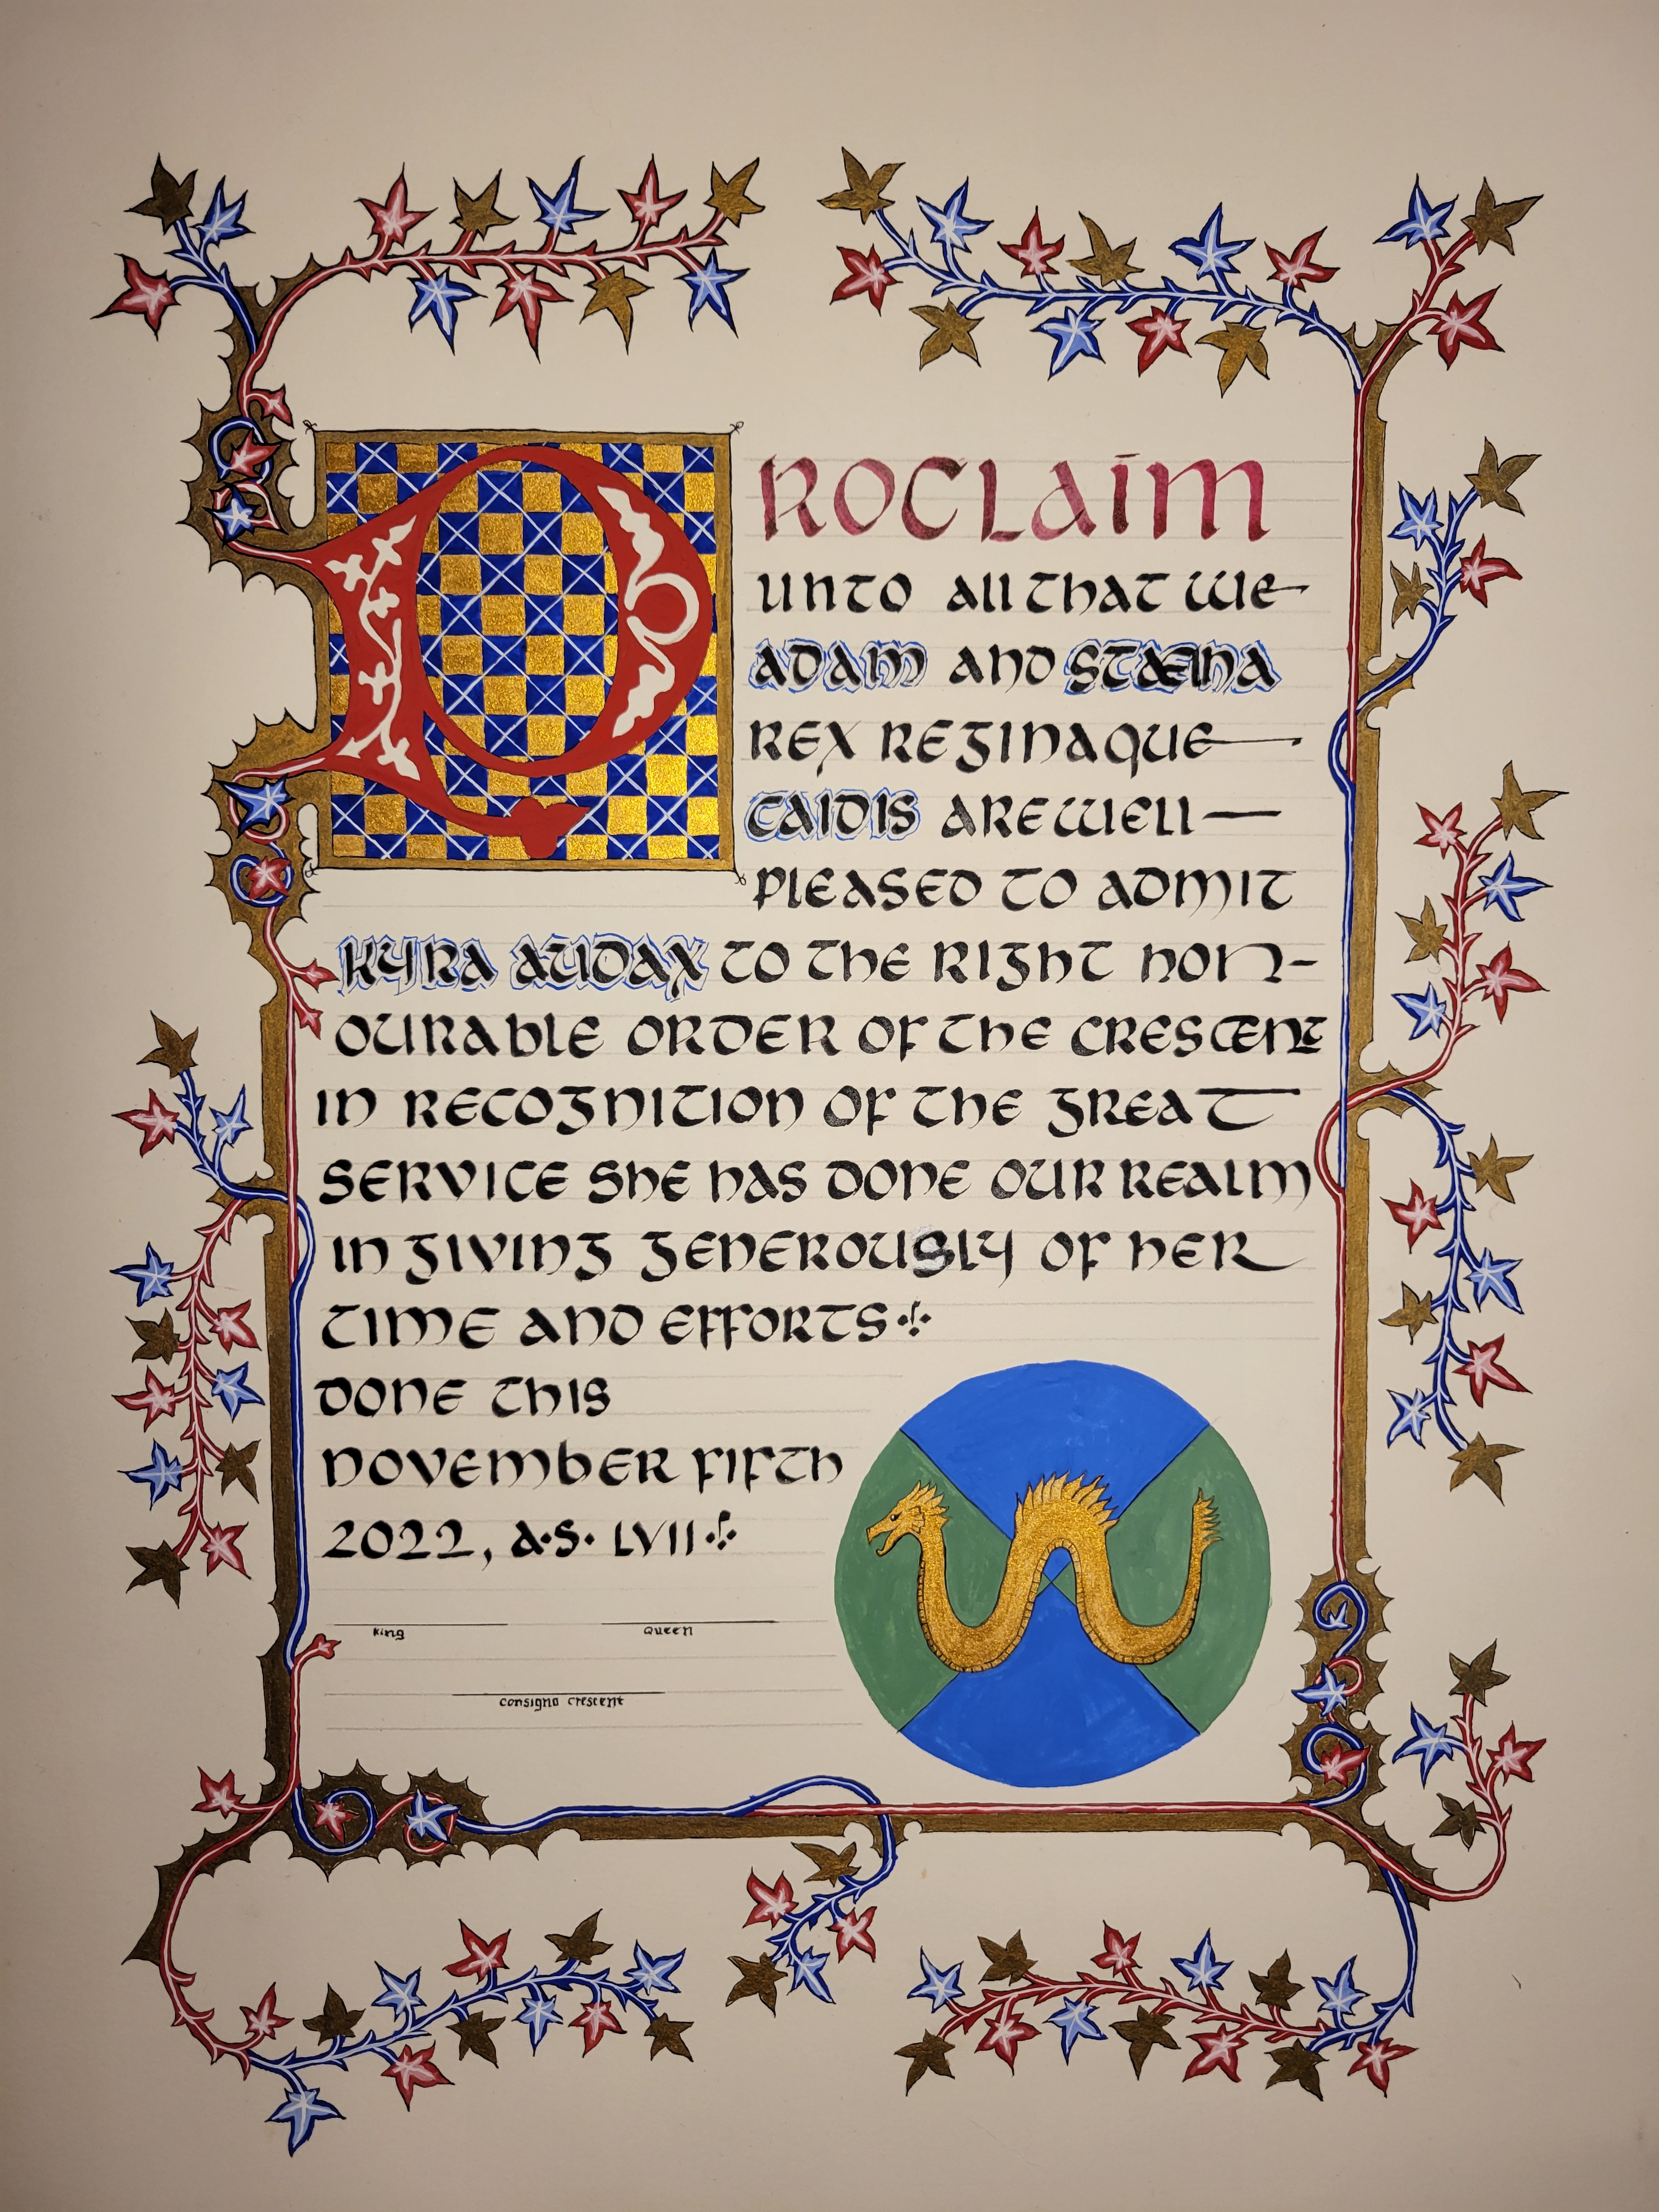 PROCLAIM
UNTO ALL THAT WE
ADAM AND STÆINA
REX REGINAQUE
CAIDIS ARE WELL
PLEASED TO ADMIT
KYRA AUDAX TO THE RIGHT HON-
OURABLE ORDER OF THE CRESCENT
IN RECOGNITION OF THE GREAT
SERVICE SHE HAS DONE OUR REALM
IN GIVING GENEROUSLY OF HER
TIME AND EFFORTS
DONE THIS
NOVEMBER FIFTH
2022, A·S· LVII
King Queen
Consigno Crescent